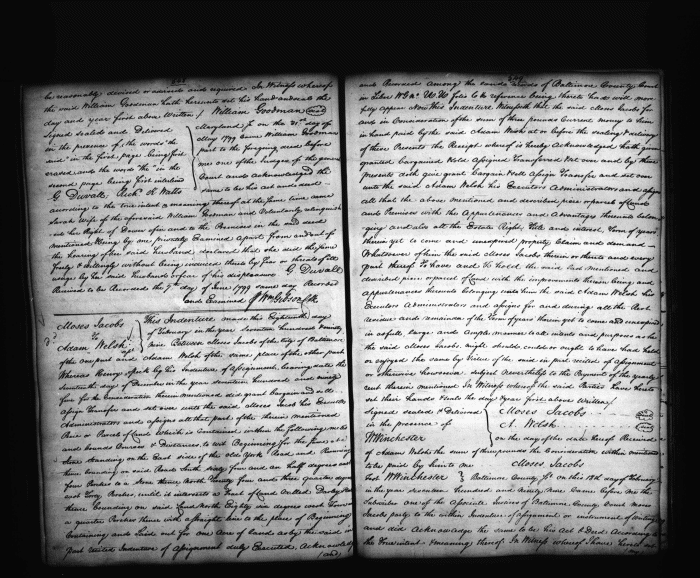 be reasonably devised or advised and required In Witness whereof
the said William Goodman hath hereunto set his hand and seal the
day and year first above Written William Goodman (seal)
Signed sealed and Delivered
in the presence of, the words "the
said" in the first page being first
erased and the words "the" in the
second page being first interlined
G Duvall, Rich^d. A Watts
Maryland Jc on the 31st day of
May 1799 Came William Goodman
party to the foregoing deed before
me one of the Judges of the general
Court and acknowledged the
same to be his act and deed
according to the true intent & meaning thereof at the same time came
Sarah wife of the aforesaid William Goodman and Voluntarily relinquish
ed her Right of Dower of in and to the Premises in the said deed
mentioned Being by me privately Examined apart from and out of
the hearing of her said husband declared that she did the same
freely & willingly without being induced thereto by fear or threats of ill
usage by her said husband or fear of his displeasure G Duvall
Received to be Recorded the 7th day of June 1799 same day Recorded
and Examined Wm Gibson Clk
Moses Jacobs
to
Adam Welsh
This Indenture made this Eighteenth day
of February in the year Seventeen hundred & ninety
Nine Between Moses Jacobs of the City of Baltimore
of the one part and Adam Welsh of the same place of the other part
Whereas Henry by his Indenture of Assignment bearing date the
seventh day of December in the year seventeen hundred and ninety
four for the Consideration therein Mentioned did grant bargain and sell
assign transfer and set over unto the said Moses Jacobs his Executors
Administrators and assigns all that part of the therein mentioned
Piece or Parcel of Land which is Contained within the following metes
and bounds Courses & Distances to wit Beginning for the same at a
Stone Standing on the East side of the old York Road and Running
thence bounding on said Road South sixty four and an half degrees west
four Perches to a Stone thence North Twenty four and three quarter degrees
west forty Perches until it intersects a Tract of Land Called
thence bounding on said Land North Eighty six degrees east Four
a quarter Perches thence with a straight line to the place of Beginning
Containing and Laid out for one Acre of Land as by the said in
part recited Indenture of Assignment duly Executed, Acknowledged
and
and Recorded among the Land Records of Baltimore County Court
in Liber WG No. UU folio & reference being thereto had will more
fully appear Now this Indenture Witnesseth that the said Moses Jacobs for
and in Consideration of the sum of three pounds Current money to him
in hand paid by the said Adam Welsh at or before the sealing & delivery
of these Presents the Receipt whereof is hereby Acknowledged hath given
granted bargained sold Assigned Transferred set over and by these
Presents doth give grant bargain sell assign Transfer and set over
unto the said Adam Welsh his Executors Administrators and assigns
all that the above mentioned and described piece or parcel of Land
and Premises with the Appurtenances and Advantages thereunto belon
ging and also all the Estate Right, Title and interest, Term of years
therein yet to come and unexpired property Claim and demand
Whatsoever of him the said Moses Jacobs therein or thereto and every
part thereof To have and To hold the said Lot Mentioned and
described piece or parcel of Land with the improvements thereon being and
Appurtenances thereunto belonging unto him the said Adam Welsh his
Executors Administrators and assigns for and during all the Rest
residue and remainder of the Term of years therein yet to come and unexpired
in as full, large and ample manner to all intents and purposes as he
the said Moses Jacobs might should could or ought to have had held
or enjoyed the same by Virtue of the said in part recited of Assignment
or otherwise howsoever subject nevertheless to the Payment of the yearly
rent therein mentioned In Witness whereof the said Parties have hereto
set their hands & seals the day & year first above Written
Signed sealed & Delivered
in the presence of
Winchester
Moses Jacobs
A. Welsh
on the day of the date hereof Received
of Adam Welsh the sum of three pounds the Consideration within mentioned
to be paid by him to me Moses Jacobs
Test Winchester Baltimore County Jc. on this 18th day of February
in the year seventeen hundred and Ninety Nine Came before me the
Subscriber one of the Associate Justices of Baltimore County Court Moses
Jacobs party to the within Indenture of assignment or instrument of writing
and did Acknowledge the same to be his Act & Deed According to
the true intent & meaning thereof In Witness whereof I have hereunto set